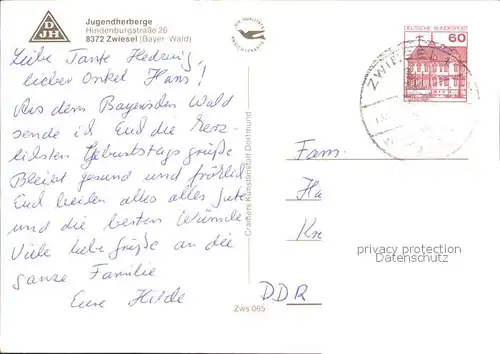 DJH
Jugendherberge
Hindenburgstraße 26
8372 Zwiesel (Bayer. Wald)
Liebe Tante Hedwig,
lieber Onkel Hans!
Aus dem Bayerischen Wald
sende ich Euch die herz-
lichsten Geburtstagsgrüße
Bleibt gesund und fröhlich
Euch beiden alles alles Gute
und die besten Wünsche
Viele liebe Grüße an die
ganze Familie
Eure Hilde
Crämers Kunstanstalt Dortmund
Zws 065
DEUTSCHE BUNDESPOST
60
ZWIESEL
Fam.
Ha
Kre
DDR
privacy protection
Datenschutz